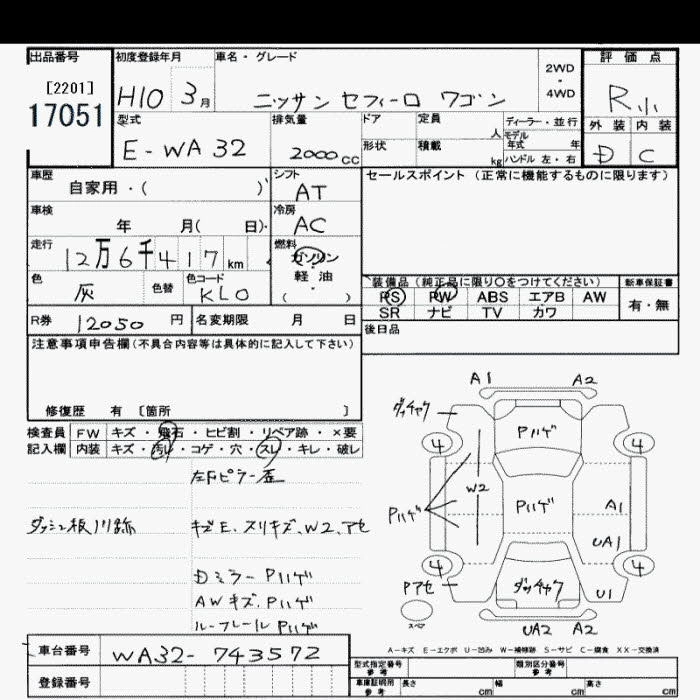 出品番号 初度登録年月 車名・グレード 2WD ・ 4WD 評価点
[2201]
17051
H10 3月 ニッサン セフィーロ ワゴン R小
型式 排気量 ドア 定員 人 ディーラー・並行 外装 内装
E-WA32 2000cc 形状 積載 kg モデル年式 年 ハンドル 左・右 D C
車歴 シフト セールスポイント (正常に機能するものに限ります)
自家用・( ) AT
車検 冷房
年 月( 日) AC
走行 燃料
12万6千417km ガソリン
色 色替 色コード 軽油
灰 KL0 ( )
装備品 (純正品に限り○をつけてください) 新車保証書
PS PW ABS エアB AW 有・無
SR ナビ TV カワ
R券 12050円 名変期限 月 日 後日品
注意事項申告欄(不具合内容等は具体的に記入して下さい)
修復歴 有 [箇所 ]
検査員 FW キズ・飛石・ヒビ割・リペア跡・×要
記入欄 内装 キズ・汚レ・コゲ・穴・スレ・キレ・破レ
左Fピラー歪
キズE、スリキズ、W2、アセ
Dミラー Pハゲ
AWキズ、Pハゲ
ルーフレール Pハゲ
A1 A2
Pハゲ
4 4
W2
Pハゲ Pハゲ A1
UA1
4 4
Pアセ U1
スペア
UA2 A2
A-キズ E-エクボ U-凹み W-補修跡 S-サビ C-腐食 XX-交換済
車台番号 WA32-743572
登録番号
型式指定番号 参考 類別区分番号 参考
車庫証明用 参考 長さ cm 幅 cm 高さ cm